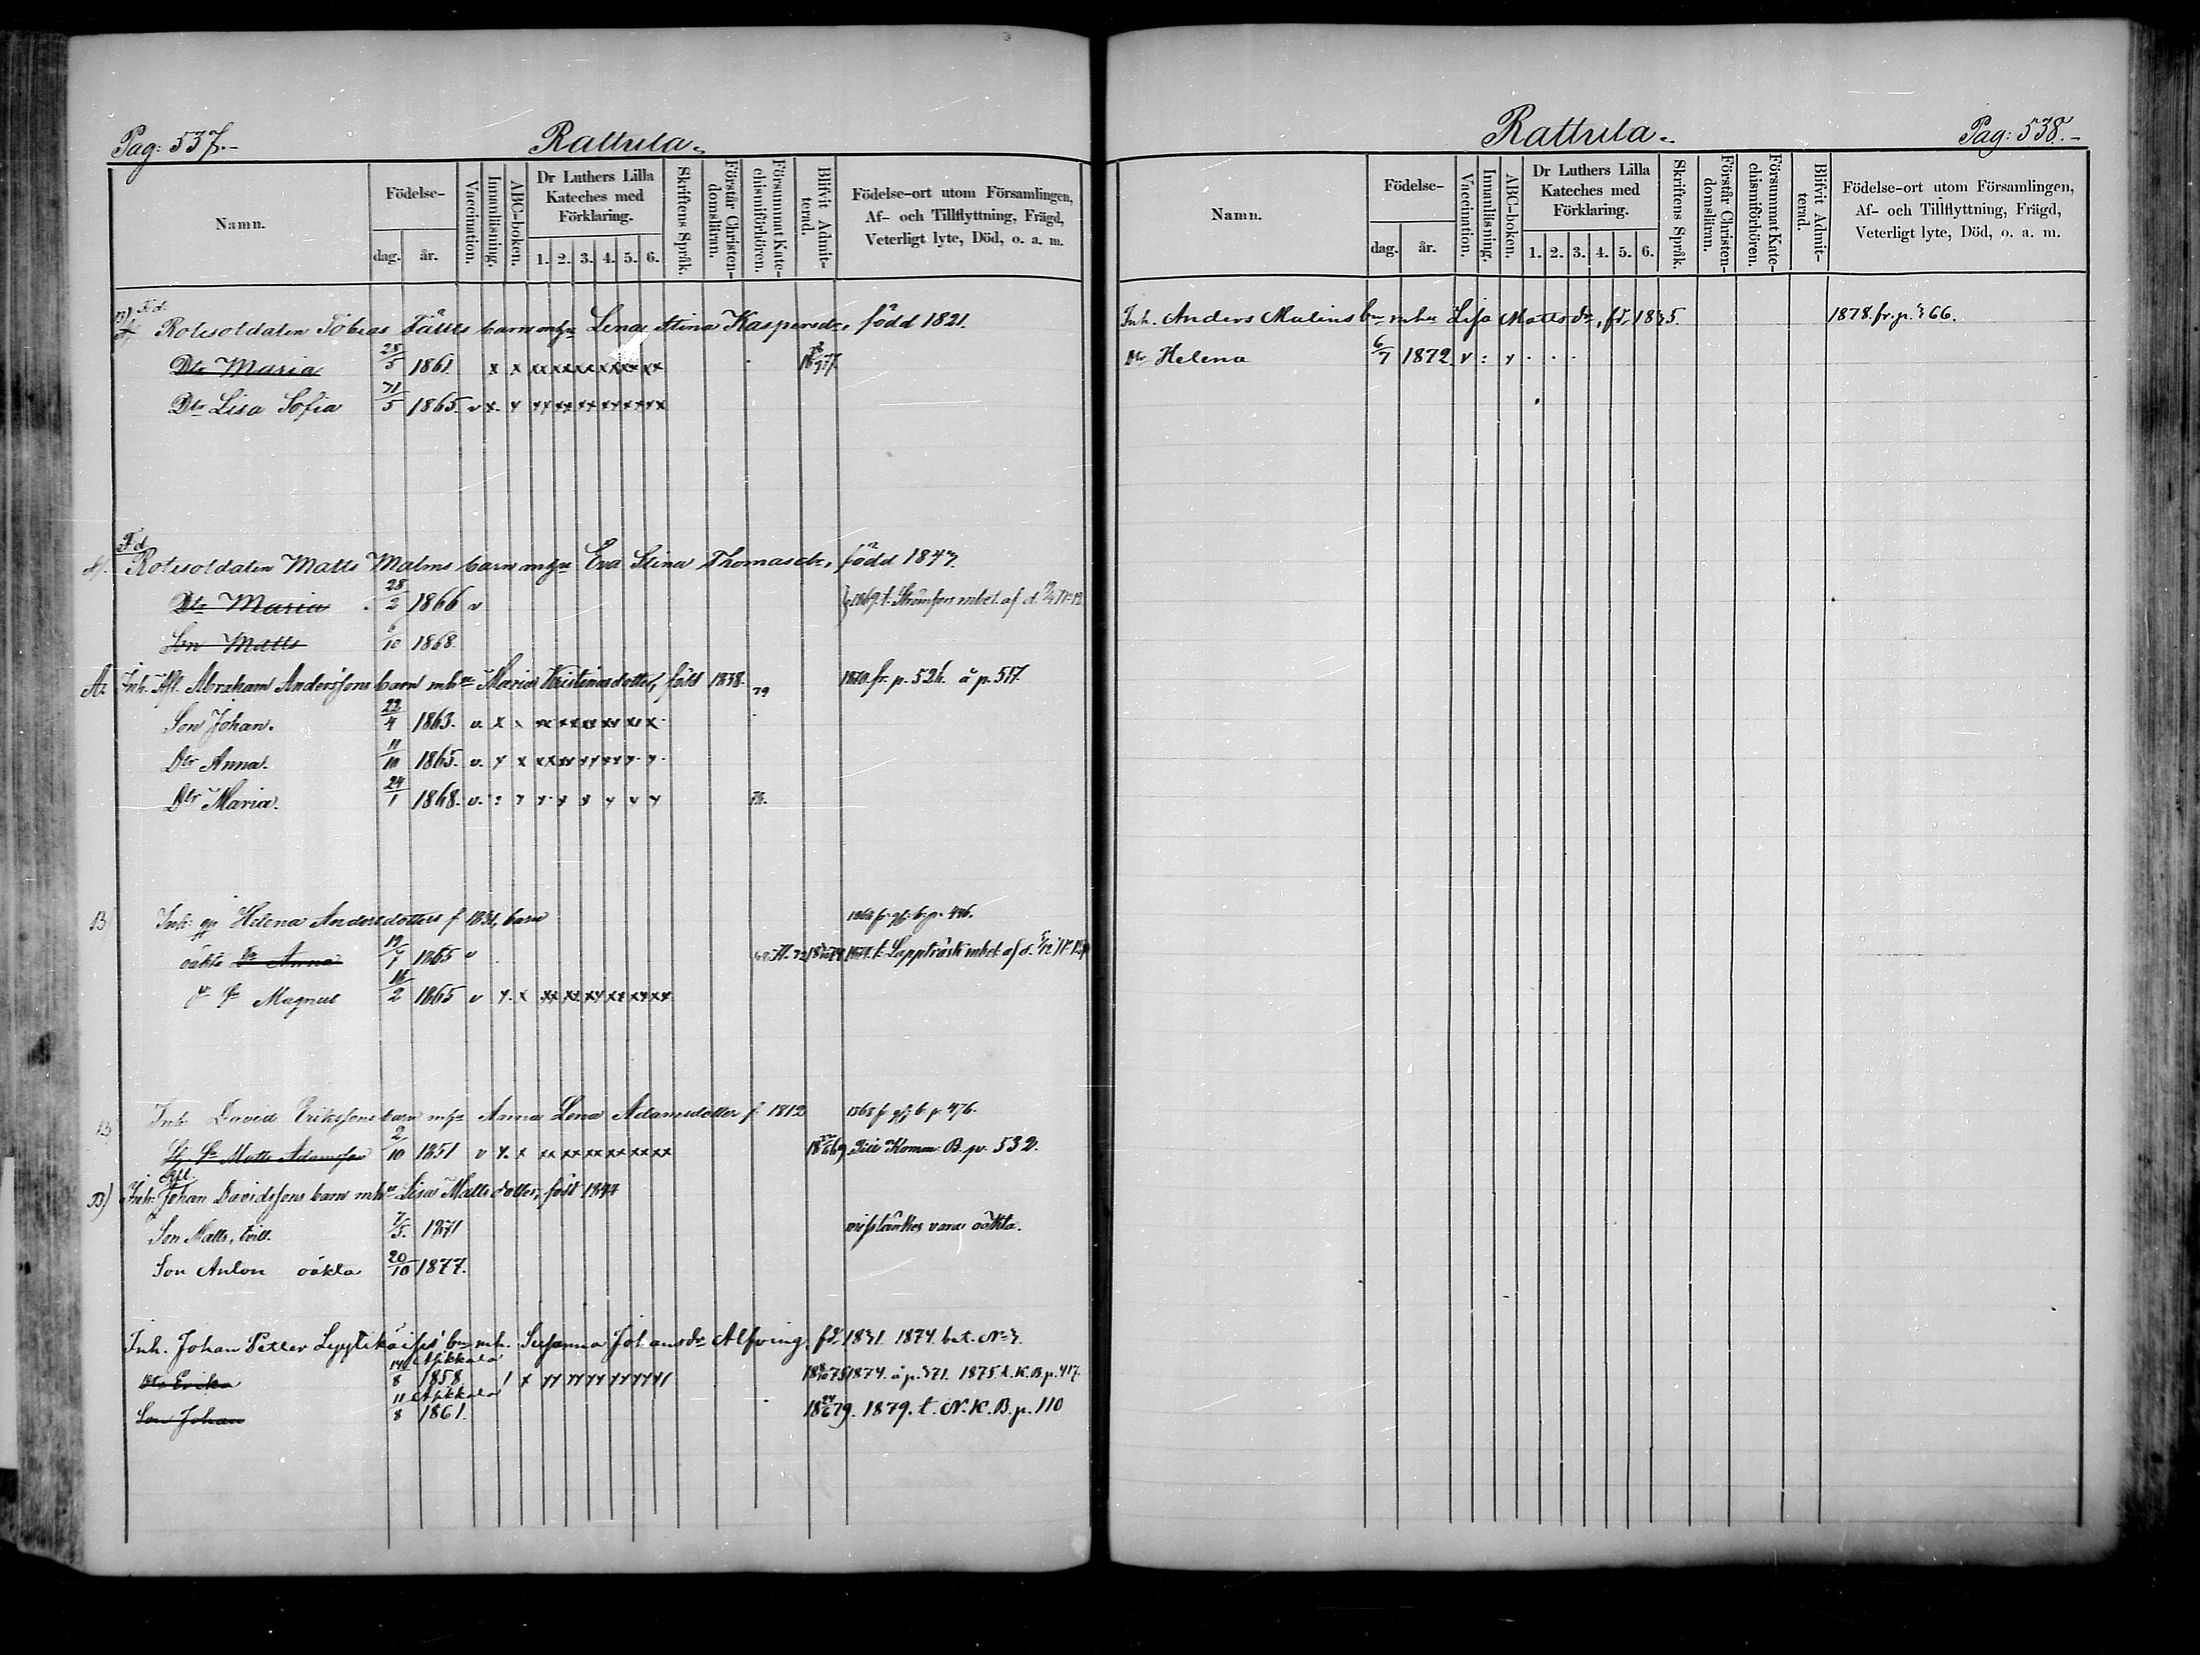 Pag: 537.-
Rattula.
Namn.
Födelse-
dag.
år.
Vaccination.
Innanläsning.
ABC-boken.
Dr Luthers Lilla
Kateches med
Förklaring.
1. 2. 3. 4. 5. 6.
Skriftens Språk.
Förstår Christen-
domsläran.
Försummat Kate-
chismiförhören.
Blifvit Admit-
terad.
Födelse-ort utom Församlingen,
Af- och Tillflyttning, Frägd,
Veterligt lyte, Död, o. a. m.
B) F.d.
Rotesoldaten Tobias barn Lena Stina Kaspersdr, född 1821.
Dtr Maria 28/5 1861. x x xx xx xx xx xx xx
Dtr Lisa Sofia 1865. v x. x xx xx xx xx xx xx
F.d.
Rotesoldaten Matts Malms barn Eva Stina Thomasdr, född 1843.
Dtr Maria 28/2 1866 v 1869 t.
Son Matts 1868.
Inh. Abraham Anderssons barn Maria Kristinasdotter, född 1838. 79 1870 fr. p. 526. å p. 517.
Son Johan. 22/4 1863. v. x
Dtr Anna. 11/10 1865. v. x x
Dtr Maria. 24/1 1868. v.
B) Inh. Helena Andersdotters f. 1831, barn 1868 fr.
oäkta Dr Anna 1865 v t. Lappträsk mbet. af d.
Magnus 16/2 1865 v x. x xx xx xx xx xx xx
B Inh. David Erikssons barn Anna Lena Adamsdotter f. 1812 1868 fr. b. p. 476.
Matts Adamsson 2/10 1851 v x. x xx xx xx xx xx xx Till Komm. B. p. 532.
B) Inh. Johan Davidssons barn Lisa Mattsdotter, född 1844
Son Matts, tvill. 7/5. 1871 misstänkes vara oäkta.
Son Anton oäkta 20/10 1877.
Inh. Johan Petter bn mh. Susanna Johansdr Alfving, fd. 1831. 1874. bet. No 3.
Dtr Erika 14/8 1858. 1874. å p. 371. 1875. t. K.B. p. 417.
Son Johan 11/8 1861. 1879. t. N. K. B. p. 110
Rattula.-
Pag: 538.-
Namn.
Födelse-
dag.
år.
Vaccination.
Innanläsning.
ABC-boken.
Dr Luthers Lilla
Kateches med
Förklaring.
1. 2. 3. 4. 5. 6.
Skriftens Språk.
Förstår Christen-
domsläran.
Försummat Kate-
chismiförhören.
Blifvit Admit-
terad.
Födelse-ort utom Församlingen,
Af- och Tillflyttning, Frägd,
Veterligt lyte, Död, o. a. m.
Inh. Anders Malins bn Lisa Mattsdr, fd. 1835. 1878. fr. p. 366.
Dtr Helena 6/7 1872. v